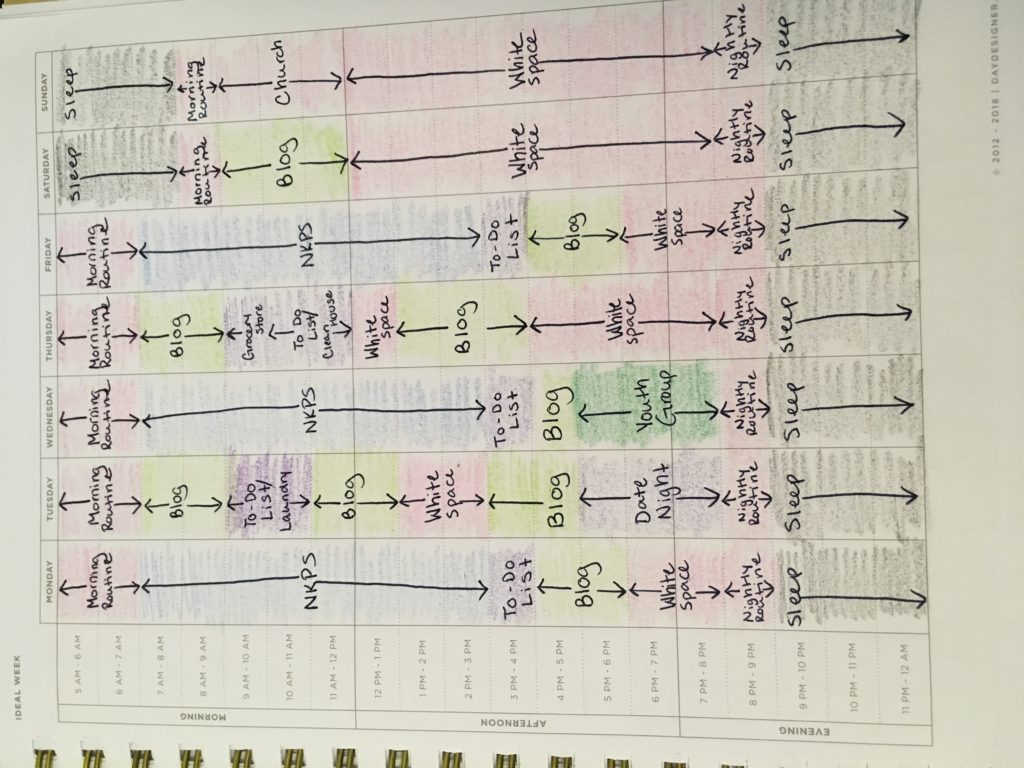 IDEAL WEEK
MORNING
AFTERNOON
EVENING
5 AM - 6 AM
6 AM - 7 AM
7 AM - 8 AM
8 AM - 9 AM
9 AM - 10 AM
10 AM - 11 AM
11 AM - 12 PM
12 PM - 1 PM
1 PM - 2 PM
2 PM - 3 PM
3 PM - 4 PM
4 PM - 5 PM
5 PM - 6 PM
6 PM - 7 PM
7 PM - 8 PM
8 PM - 9 PM
9 PM - 10 PM
10 PM - 11 PM
11 PM - 12 AM
MONDAY
Morning
Routine
NKPS
To-Do
List
Blog
White
Space
Nightly
Routine
Sleep
TUESDAY
Morning
Routine
Blog
To-Do
List/
Laundry
Blog
White
Space
Blog
Date
Night
Nightly
Routine
Sleep
WEDNESDAY
Morning
Routine
NKPS
To-Do
List
Blog
Youth
Group
Nightly
Routine
Sleep
THURSDAY
Morning
Routine
Blog
Grocery
Store
To Do
List/
Clean House
White
Space
Blog
White
Space
Nightly
Routine
Sleep
FRIDAY
Morning
Routine
NKPS
To-Do
List
Blog
White
Space
Nightly
Routine
Sleep
SATURDAY
Sleep
Morning
Routine
Blog
White
Space
Nightly
Routine
Sleep
SUNDAY
Sleep
Morning
Routine
Church
White
Space
Nightly
Routine
Sleep
© 2012 - 2018 | DAYDESIGNER.